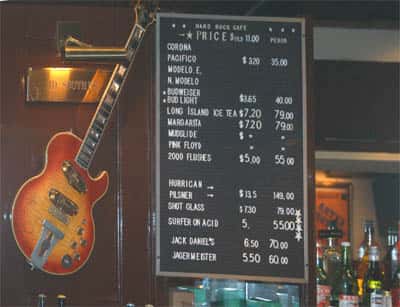 HARD ROCK CAFE
PRICES USD 11.00 PESOS
CORONA
PACIFICO $ 3.20 35.00
MODELO. E.
N. MODELO
BUDWEISER
BUD LIGHT $3.65 40.00
LONG ISLAND ICE TEA $7.20 79.00
MARGARITA $7.20 79.00
MUDGLIDE $ " "
PINK FLOYD " "
2000 FLUSHES $5.00 55.00
HURRICAN →
PILSNER → $ 13.5 149.00
SHOT GLASS $ 7.30 79.00
SURFER ON ACID 5. 55.00
JACK DANIEL'S 6.50 70.00
JAGERMEISTER 5.50 60.00